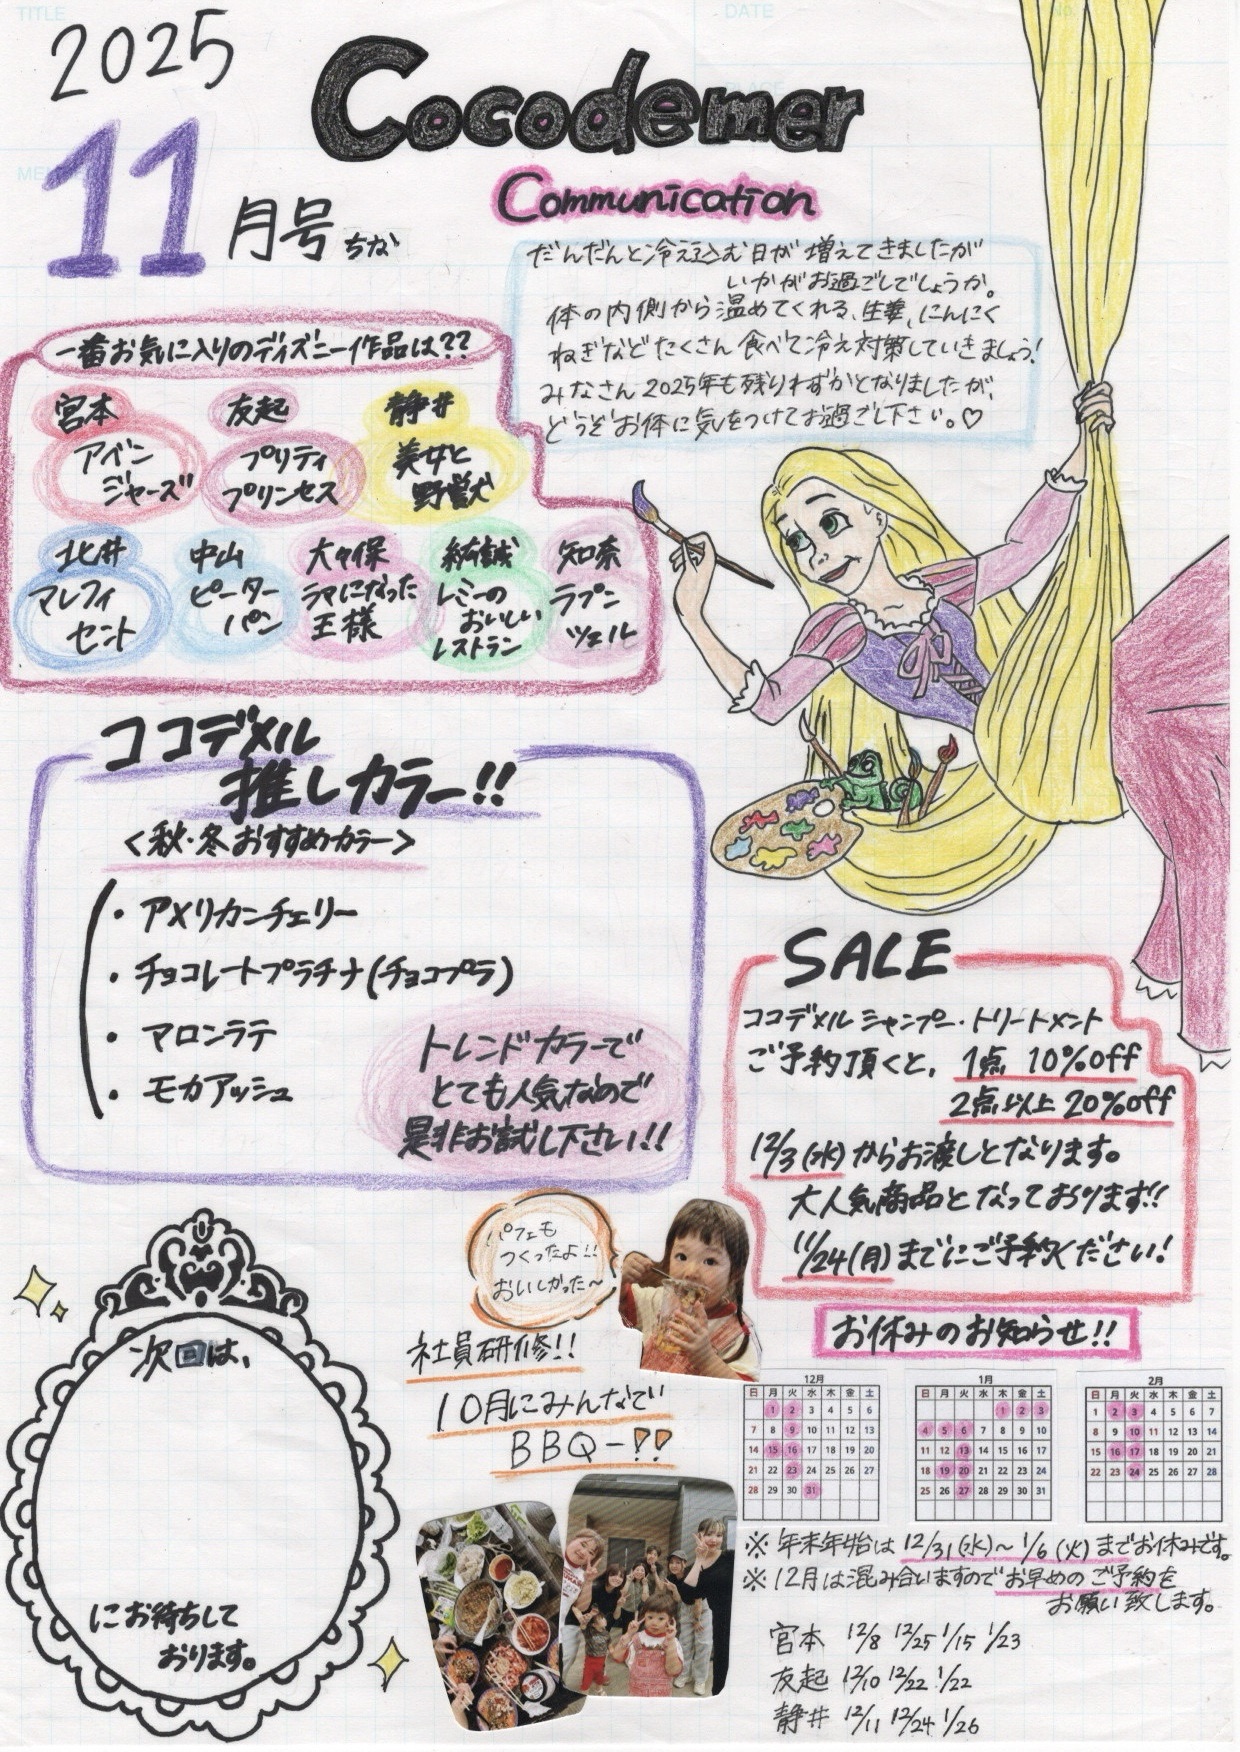 TITLE
DATE
No.
2025
Cocodemer
Communication
11月号 ちな
だんだんと冷え込む日が増えてきましたが
いかがお過ごしでしょうか。
体の内側から温めてくれる、生姜、にんにく
ねぎなどたくさん食べて冷え対策していきましょう!
みなさん2025年も残りわずかとなりましたが、
どうぞお体に気をつけてお過ごし下さい。♡
一番お気に入りのディズニー作品は??
宮本
アベン
ジャーズ
友起
プリティ
プリンセス
静井
美女と
野獣
北井
マレフィ
セント
中山
ピーター
パン
大久保
ラマになった
王様
結誠
レミーの
おいしい
レストラン
知奈
ラプン
ツェル
ココデメル
推しカラー!!
<秋・冬おすすめカラー>
・アメリカンチェリー
・チョコレートプラチナ(チョコプラ)
・マロンラテ
・モカアッシュ
トレンドカラーで
とても人気なので
是非お試し下さい!!
SALE
ココデメルシャンプー・トリートメント
ご予約頂くと、1点 10%off
2点以上 20%off
12/3(水)からお渡しとなります。
大人気商品となっております!!
11/24(月)までにご予約ください!
次回は、
にお待ちして
おります。
パフェも
つくったよ!!
おいしかった〜
社員研修!!
10月にみんなで
BBQー!!
お休みのお知らせ!!
12月
日 月 火 水 木 金 土
1 2 3 4 5 6
7 8 9 10 11 12 13
14 15 16 17 18 19 20
21 22 23 24 25 26 27
28 29 30 31
1月
日 月 火 水 木 金 土
1 2 3
4 5 6 7 8 9 10
11 12 13 14 15 16 17
18 19 20 21 22 23 24
25 26 27 28 29 30 31
2月
日 月 火 水 木 金 土
1 2 3 4 5 6 7
8 9 10 11 12 13 14
15 16 17 18 19 20 21
22 23 24 25 26 27 28
※ 年末年始は 12/31(水)〜1/6(火)までお休みです。
※ 12月は混み合いますのでお早めのご予約を
お願い致します。
宮本 12/8 12/25 1/15 1/23
友起 12/10 12/22 1/22
静井 12/11 12/24 1/26